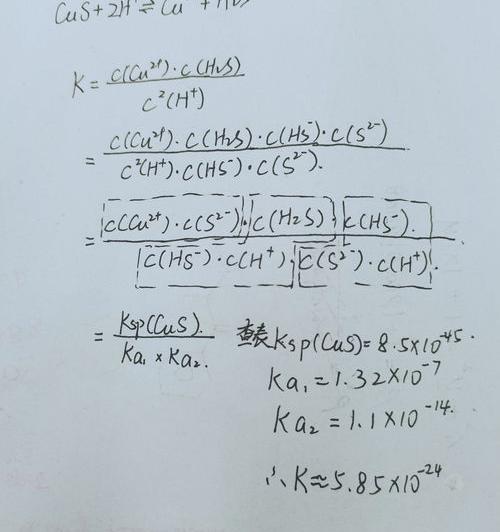 CuS+2H⁺⇌Cu²⁺+H₂S
K = c(Cu²⁺)·c(H₂S) / c²(H⁺)
= c(Cu²⁺)·c(H₂S)·c(HS⁻)·c(S²⁻) / c²(H⁺)·c(HS⁻)·c(S²⁻).
= c(Cu²⁺)·c(S²⁻)·c(H₂S)·c(HS⁻). / c(HS⁻)·c(H⁺)·c(S²⁻)·c(H⁺).
= Ksp(CuS). / Ka₁ × Ka₂. 查表Ksp(CuS)=8.5×10⁻⁴⁵.
Ka₁=1.32×10⁻⁷
Ka₂=1.1×10⁻¹⁴.
∴K≈5.85×10⁻²⁴